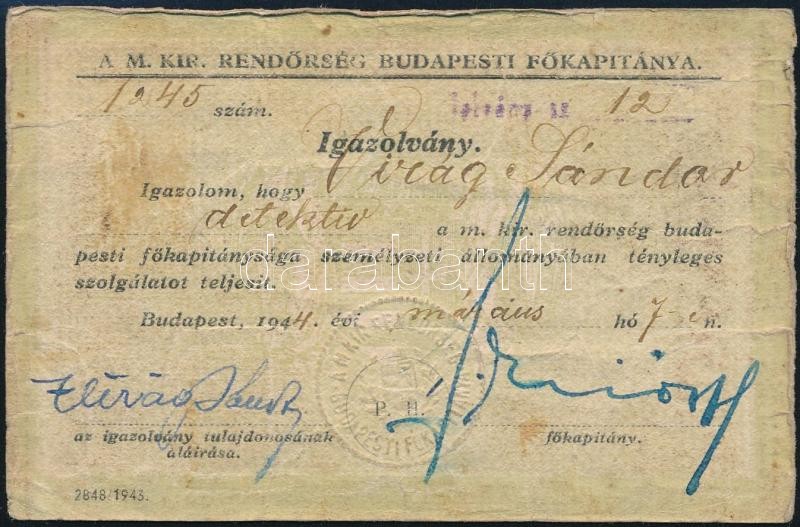 A M. KIR. RENDŐRSÉG BUDAPESTI FŐKAPITÁNYA.
1245 szám. 12
Igazolvány.
Igazolom, hogy Virág Sándor
detektiv a m. kir. rendőrség buda-
pesti főkapitánysága személyzeti állományában tényleges
szolgálatot teljesit.
Budapest, 1944. évi március hó 7 én.
Virág Sándor
P. H.
az igazolvány tulajdonosának főkapitány.
aláirása.
2848/1943.
darabanth